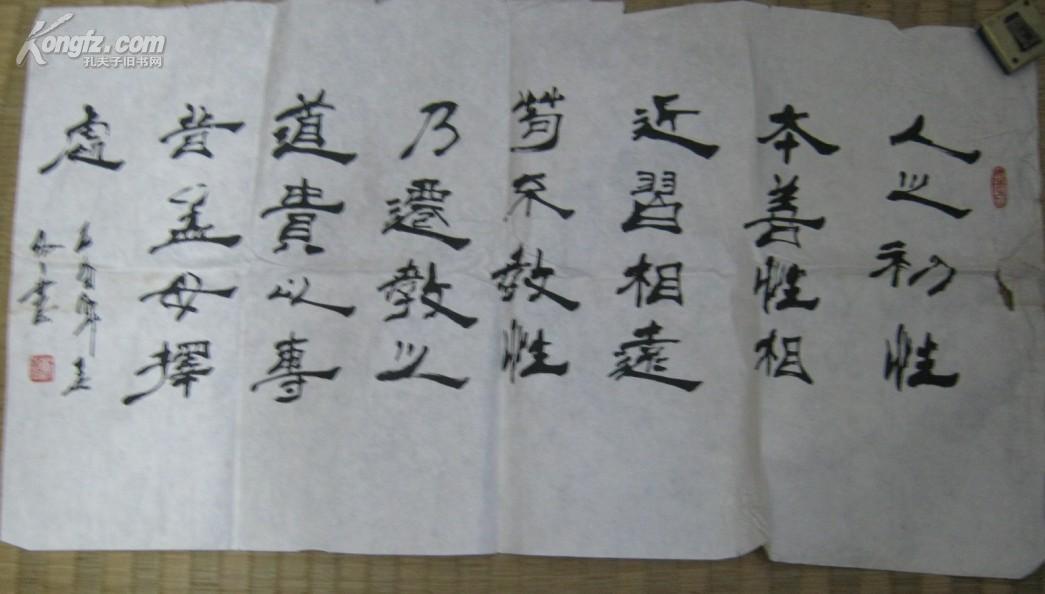 人之初性
本善性相
近習相遠
茍不教性
乃遷教之
道貴以專
昔孟母擇
處
Kongfz.com
孔夫子旧书网